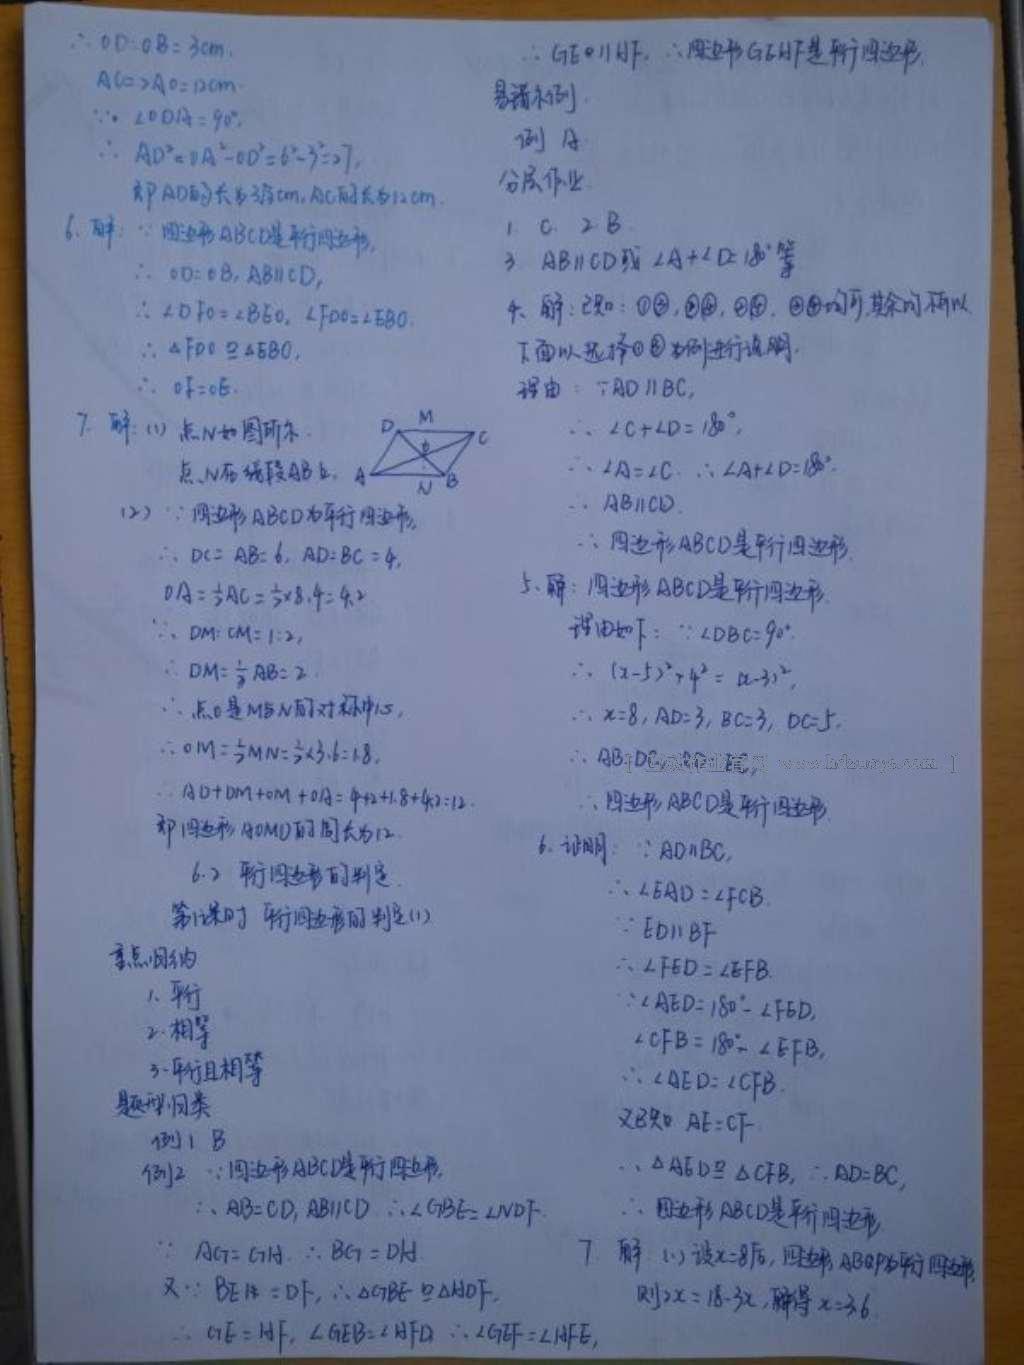 ∴ OD=OB=3cm.
AC=2AO=12cm.
∵ ∠ODA=90°,
∴ AD²=OA²-OD²=6²-3²=27,
即AD的长为3√3cm, AC的长为12cm.
6. 解: ∵ 四边形ABCD是平行四边形,
∴ OD=OB, AB∥CD,
∴ ∠DFO=∠BEO, ∠FDO=∠EBO.
∴ △FDO≌△EBO,
∴ OF=OE.
7. 解: (1) 点N如图所示.
点N在线段AB上.
D M C
O
A N B
(2) ∵ 四边形ABCD为平行四边形,
∴ DC=AB=6, AD=BC=4,
OA=½AC=½×8.4=4.2
∵ DM:CM=1:2,
∴ DM=⅓AB=2.
∵ 点O是M与N的对称中心,
∴ OM=½MN=½×3.6=1.8,
∴ AD+DM+OM+OA=4+2+1.8+4.2=12.
即四边形AOMD的周长为12.
6.2 平行四边形的判定
第1课时 平行四边形的判定(1)
重点归纳
1. 平行
2. 相等
3. 平行且相等
题型归类
例1 B
例2 ∵ 四边形ABCD是平行四边形,
∴ AB=CD, AB∥CD ∴ ∠GBE=∠HDF.
∵ AG=CH. ∴ BG=DH.
又∵ BE=DF, ∴ △GBE≌△HDF,
∴ GE=HF, ∠GEB=∠HFD ∴ ∠GEF=∠HFE,
∴ GE∥HF, ∴ 四边形GEHF是平行四边形.
易错示例
例 A
分层作业
1. C. 2. B.
3. AB∥CD或∠A+∠D=180°等
4. 解: 已知: 均可, 其余均不可以
下面以选择 为例进行说明.
理由: ∵ AD∥BC,
∴ ∠C+∠D=180°,
∵ ∠A=∠C. ∴ ∠A+∠D=180°.
∴ AB∥CD.
∴ 四边形ABCD是平行四边形.
5. 解: 四边形ABCD是平行四边形.
理由如下: ∵ ∠DBC=90°.
∴ (x-5)²+4²=(x-3)²,
∴ x=8, AD=3, BC=3, DC=5.
∴ AB=DC,
∴ 四边形ABCD是平行四边形.
6. 证明: ∵ AD∥BC,
∴ ∠EAD=∠FCB.
∵ ED∥BF
∴ ∠FED=∠EFB.
∵ ∠AED=180°-∠FED,
∠CFB=180°-∠EFB,
∴ ∠AED=∠CFB.
又已知 AE=CF
∴ △AED≌△CFB, ∴ AD=BC,
∴ 四边形ABCD是平行四边形.
7. 解: (1) 设x= 后, 四边形ABQP为平行四边形,
则2x=18-3x, 解得x=3.6.